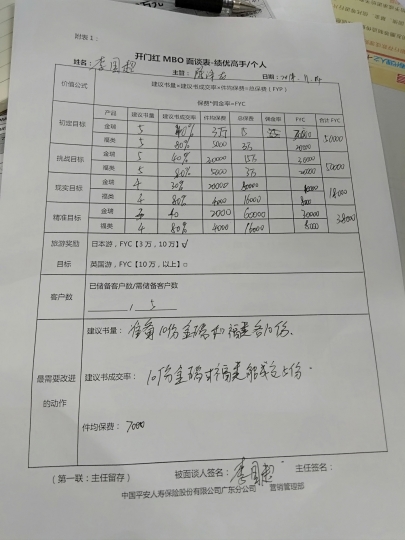 附表1：
开门红MBO面谈表-绩优高手/个人
姓名：李国超 主管： 日期：
价值公式 建议书量*建议书成交率*件均保费=总保费（FYP）
保费*佣金率=FYC
产品 建议书量 建议书成交率 件均保费 总保费 佣金率 FYC 合计FYC
初定目标 金瑞 5 40% 3万 50000
福类 5 80% 5000 2万
挑战目标 金瑞 5 40% 20000 50000
福类 5 80% 5000
现实目标 金瑞 4 30% 20000 18000
福类 4 80% 4000 16000 8000
精准目标 金瑞 40 2000 60000 30000 38000
福类 4 80% 4000 16000 8000
旅游奖励 日本游，FYC【3万，10万】√
目标 英国游，FYC【10万，以上】○
客户数 已储备客户数/需储备客户数
1 5
最需要改进的动作
建议书量：准备10份金瑞和福类各10份.
建议书成交率：10份金瑞和福类能成交上份.
件均保费：7000
（第一联：主任留存） 被面谈人签名：李国超 主任签名：
中国平安人寿保险股份有限公司广东分公司 营销管理部